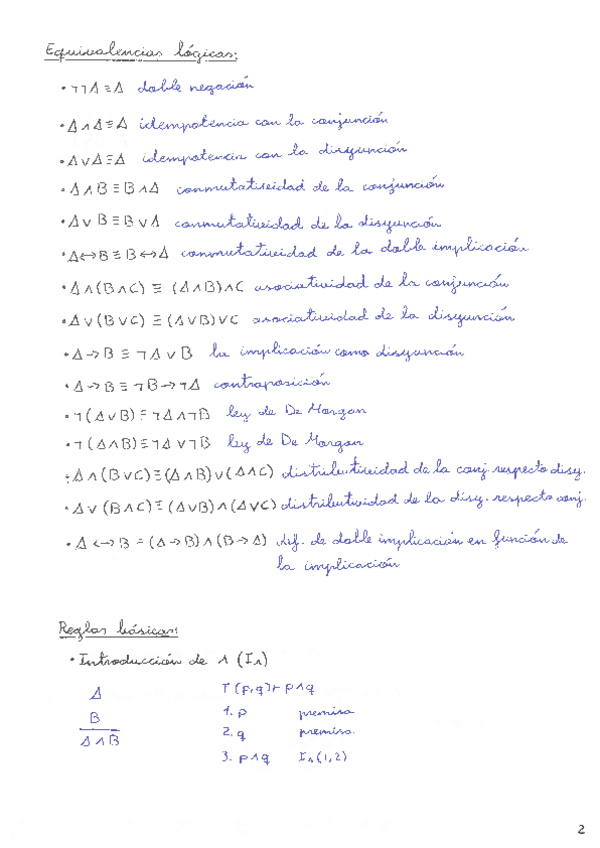 Equivalencias lógicas:
• ¬¬A ≡ A doble negación
• A ∧ A ≡ A idempotencia con la conjunción
• A ∨ A ≡ A idempotencia con la disyunción
• A ∧ B ≡ B ∧ A conmutatividad de la conjunción
• A ∨ B ≡ B ∨ A conmutatividad de la disyunción
• A ↔ B ≡ B ↔ A conmutatividad de la doble implicación
• A ∧ (B ∧ C) ≡ (A ∧ B) ∧ C asociatividad de la conjunción
• A ∨ (B ∨ C) ≡ (A ∨ B) ∨ C asociatividad de la disyunción
• A → B ≡ ¬A ∨ B la implicación como disyunción
• A → B ≡ ¬B → ¬A contraposición
• ¬(A ∨ B) ≡ ¬A ∧ ¬B ley de De Morgan
• ¬(A ∧ B) ≡ ¬A ∨ ¬B ley de De Morgan
• A ∧ (B ∨ C) ≡ (A ∧ B) ∨ (A ∧ C) distributividad de la conj. respecto disy.
• A ∨ (B ∧ C) ≡ (A ∨ B) ∧ (A ∨ C) distributividad de la disy. respecto conj.
• A ↔ B ≡ (A → B) ∧ (B → A) def. de doble implicación en función de
la implicación
Reglas básicas:
• Introducción de ∧ (I∧)
A
B
A ∧ B
T [p,q] ⊢ p ∧ q
1. p premisa
2. q premisa.
3. p ∧ q I∧ (1,2)
2